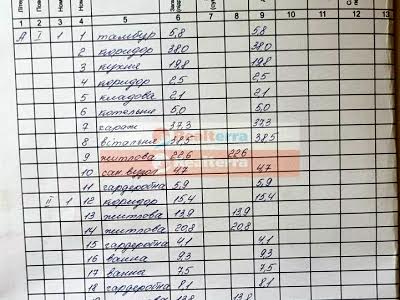 1 3 4 5 8 9 10 11 12 13
А І 1 1 тамбур 5,8 5,8
2 коридор 38,0 38,0
3 кухня 19,8 19,8
4 коридор 2,5 2,5
5 кладова 2,1 2,1
6 котельня 5,0 5,0
7 гараж 37,3 37,3
8 вітальня 38,5 38,5
9 житлова 22,6 22,6
10 сан.вузол 4,7 4,7
11 гардеробна 5,9 5,9
ІІ 1 12 коридор 15,4 15,4
13 житлова 13,9 13,9
14 житлова 20,8 20,8
15 гардеробна 4,1 4,1
16 ванна 9,3 9,3
17 ванна 7,5 7,5
18 гардеробна 8,1 8,1
13,8 13,8
Realterra
Realterra